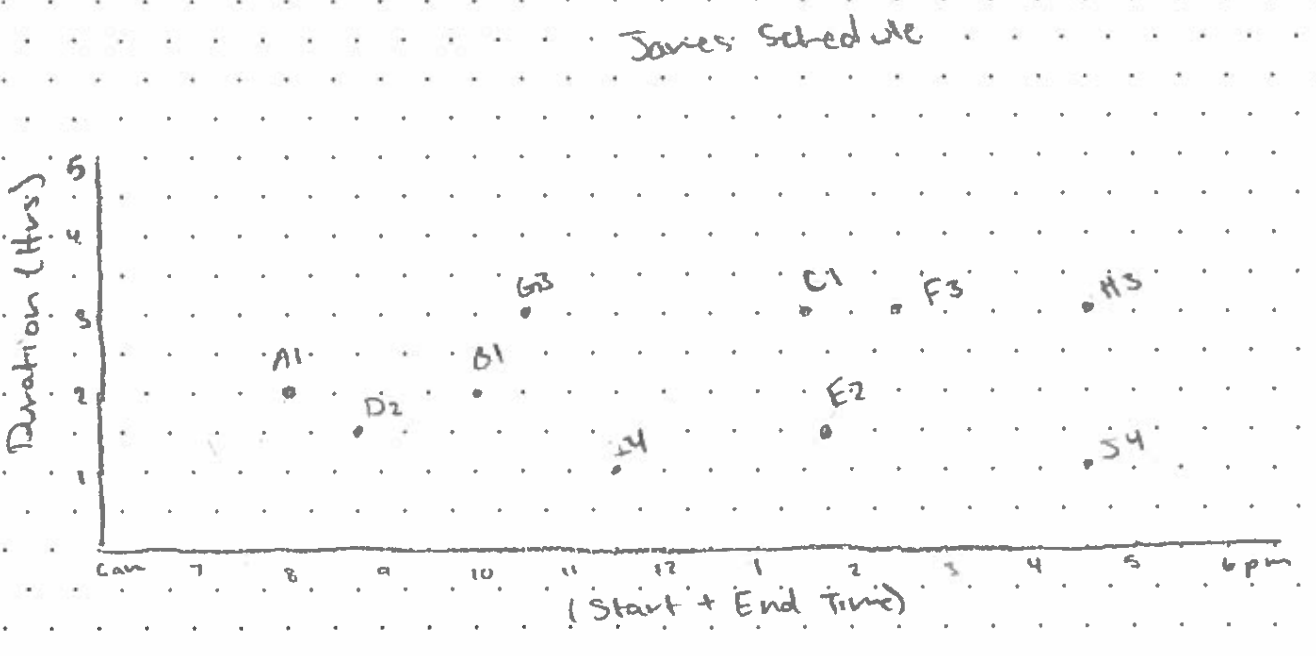 James Schedule
Duration (Hrs)
5
4
3
2
1
G3
C1
F3
H3
A1
B1
D2
E2
I4
J4
6am 7 8 9 10 11 12 1 2 3 4 5 6pm
(Start + End Time)